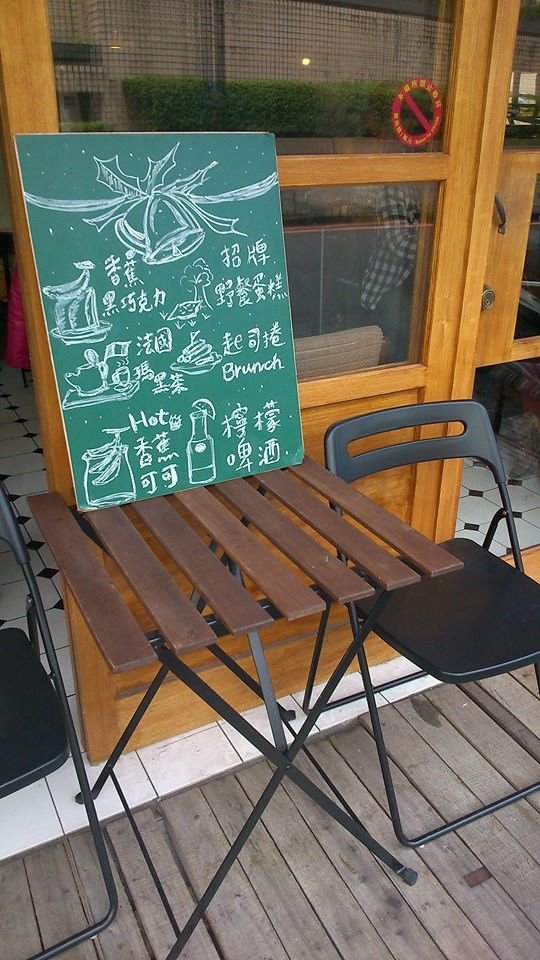 香蕉
黑巧克力
招牌
野餐蛋糕
法國
瑪黑茶
起司捲
Brunch
Hot
香蕉
可可
檸檬
啤酒